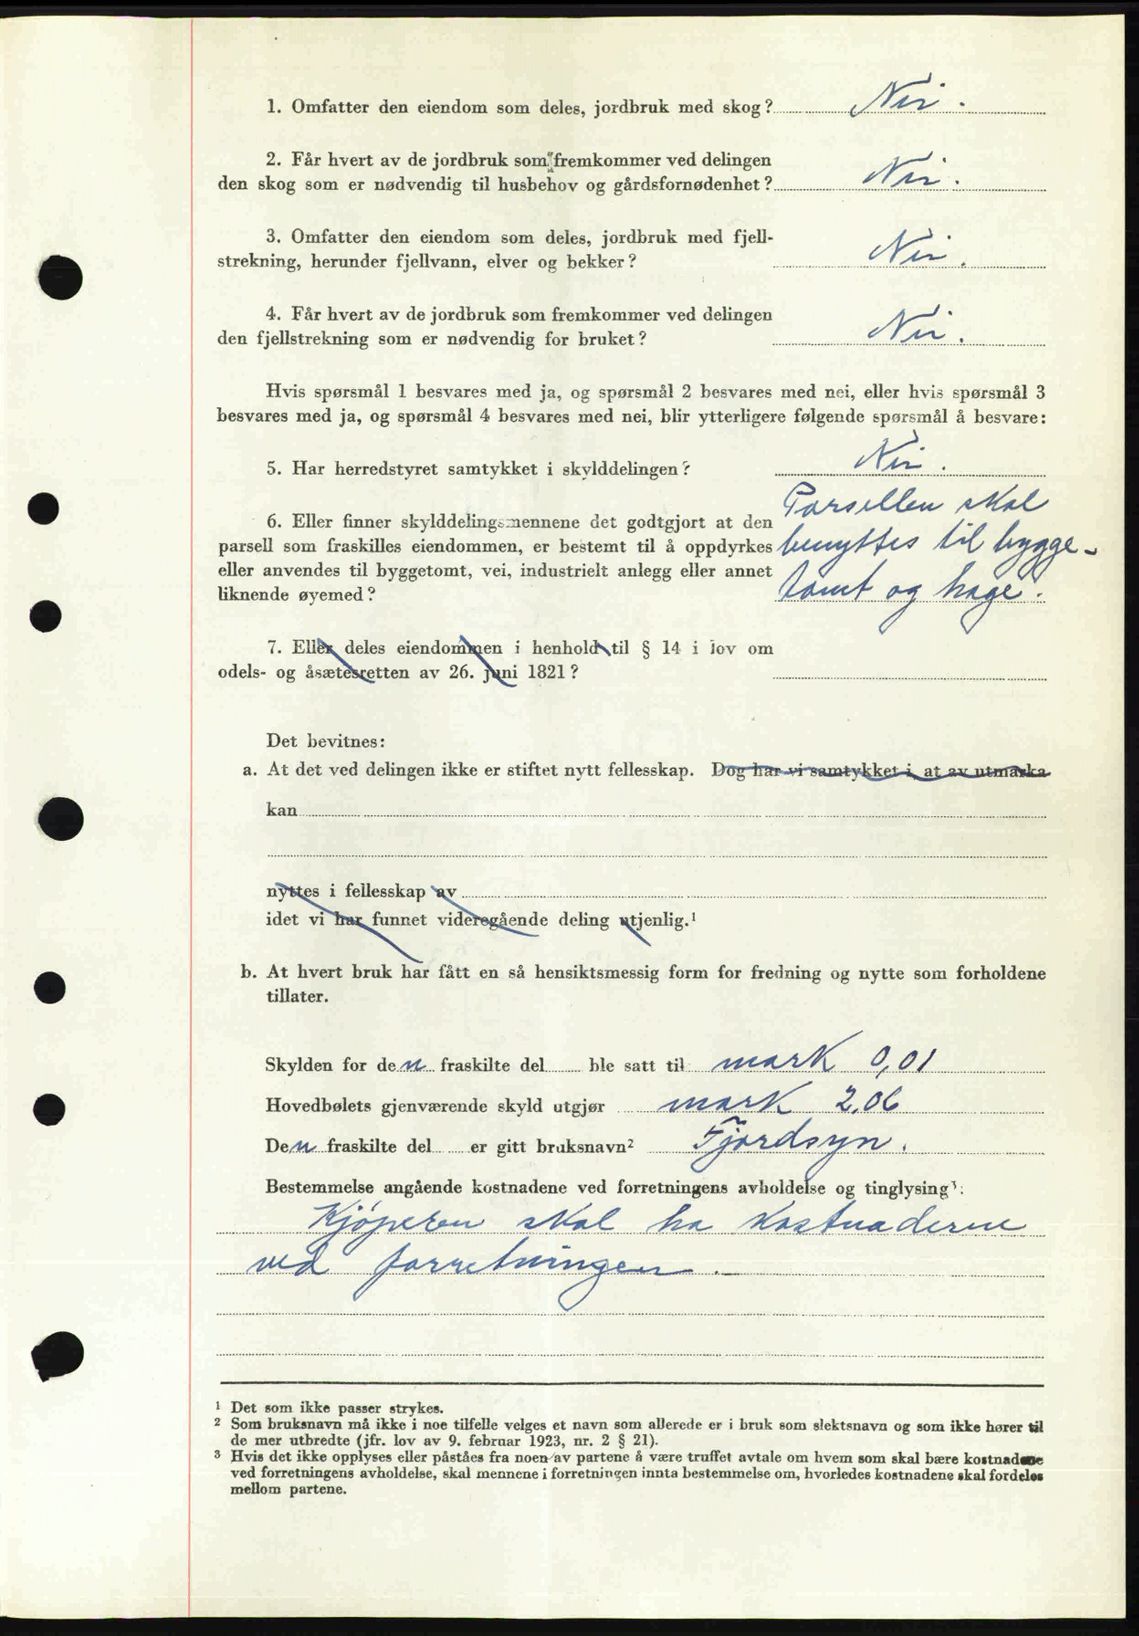 1. Omfatter den eiendom som deles, jordbruk med skog? Nei.
2. Får hvert av de jordbruk som fremkommer ved delingen
den skog som er nødvendig til husbehov og gårdsfornødenhet? Nei.
3. Omfatter den eiendom som deles, jordbruk med fjell-
strekning, herunder fjellvann, elver og bekker? Nei.
4. Får hvert av de jordbruk som fremkommer ved delingen
den fjellstrekning som er nødvendig for bruket? Nei.
Hvis spørsmål 1 besvares med ja, og spørsmål 2 besvares med nei, eller hvis spørsmål 3
besvares med ja, og spørsmål 4 besvares med nei, blir ytterligere følgende spørsmål å besvare:
5. Har herredstyret samtykket i skylddelingen? Nei.
6. Eller finner skylddelingsmennene det godtgjort at den
parsell som fraskilles eiendommen, er bestemt til å oppdyrkes
eller anvendes til byggetomt, vei, industrielt anlegg eller annet
liknende øyemed?
Parsellen skal
benyttes til bygge-
tomt og hage.
7. Eller deles eiendommen i henhold til § 14 i lov om
odels- og åsætesretten av 26. juni 1821?
Det bevitnes:
a. At det ved delingen ikke er stiftet nytt fellesskap. Dog har vi samtykket i, at av utmarka
kan
nyttes i fellesskap av
idet vi har funnet videregående deling utjenlig.¹
b. At hvert bruk har fått en så hensiktsmessig form for fredning og nytte som forholdene
tillater.
Skylden for den fraskilte del ble satt til mark 0,01
Hovedbølets gjenværende skyld utgjør mark 2,06
Den fraskilte del er gitt bruksnavn² Fjordsyn.
Bestemmelse angående kostnadene ved forretningens avholdelse og tinglysing³:
Kjöperen skal ha kostnadene
ved forretningen.
¹ Det som ikke passer strykes.
² Som bruksnavn må ikke i noe tilfelle velges et navn som allerede er i bruk som slektsnavn og som ikke hører til
de mer utbredte (jfr. lov av 9. februar 1923, nr. 2 § 21).
³ Hvis det ikke opplyses eller påståes fra noen av partene å være truffet avtale om hvem som skal bære kostnadene
ved forretningens avholdelse, skal mennene i forretningen innta bestemmelse om, hvorledes kostnadene skal fordeles
mellom partene.